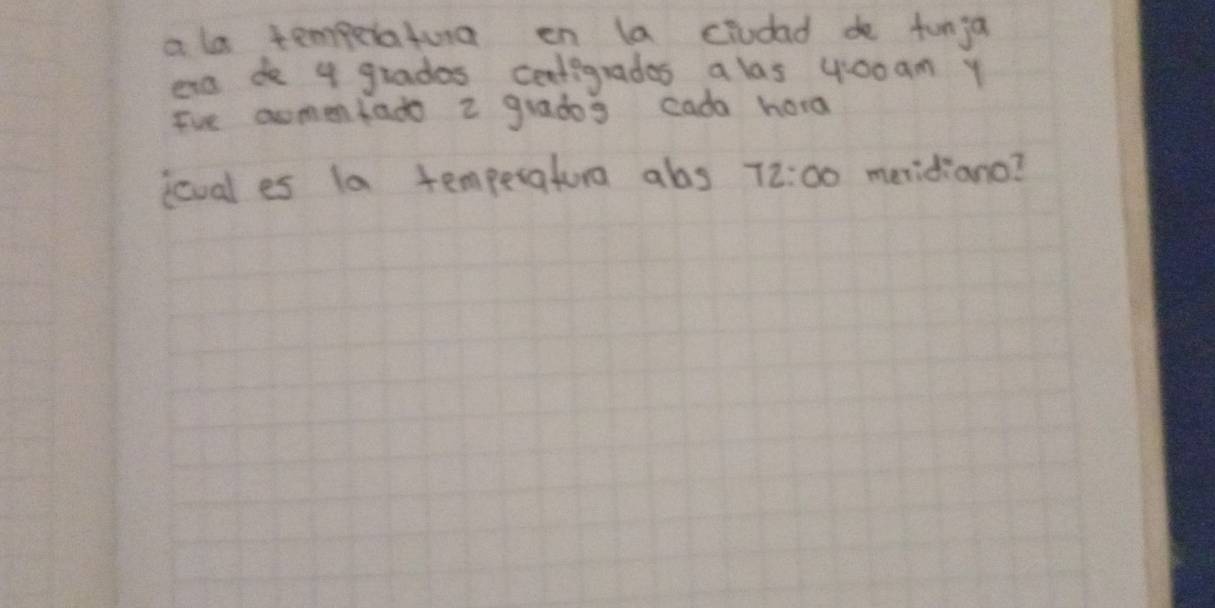 a la temperatura en la ciudad de tunja
era de 4 grados centigrados a las 4:00 am y
fue aumentado 2 grados cada hora
¿cual es la temperatura alas 12:00 meridiano?